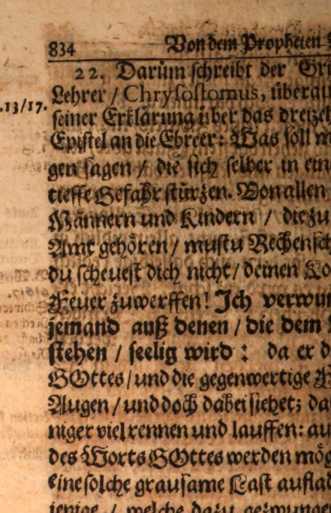 834 Von dem Propheten
22. Darum schreibt der Gri
.13/17. Lehrer / Chrysostomus, überau
seiner Erklärung über das dreizeh
Epistel an die Ebreer: Was soll m
gen sagen / die sich selber in ein
tieffe Gefahr stürzen. Von allen
Männern und Kindern / die zu
Amt gehören / mustu Rechensch
du scheuest dich nicht / deinen Ko
Feuer zuwerffen! Ich verwun
jemand auß denen / die dem
stehen / seelig wird: da er d
GOttes / und die gegenwertige
Augen / und doch dabei siehet; da
niger viel rennen und lauffen: au
des Worts GOttes werden mög
eine solche grausame Last auflad
jenige / welche dazu gezwungen